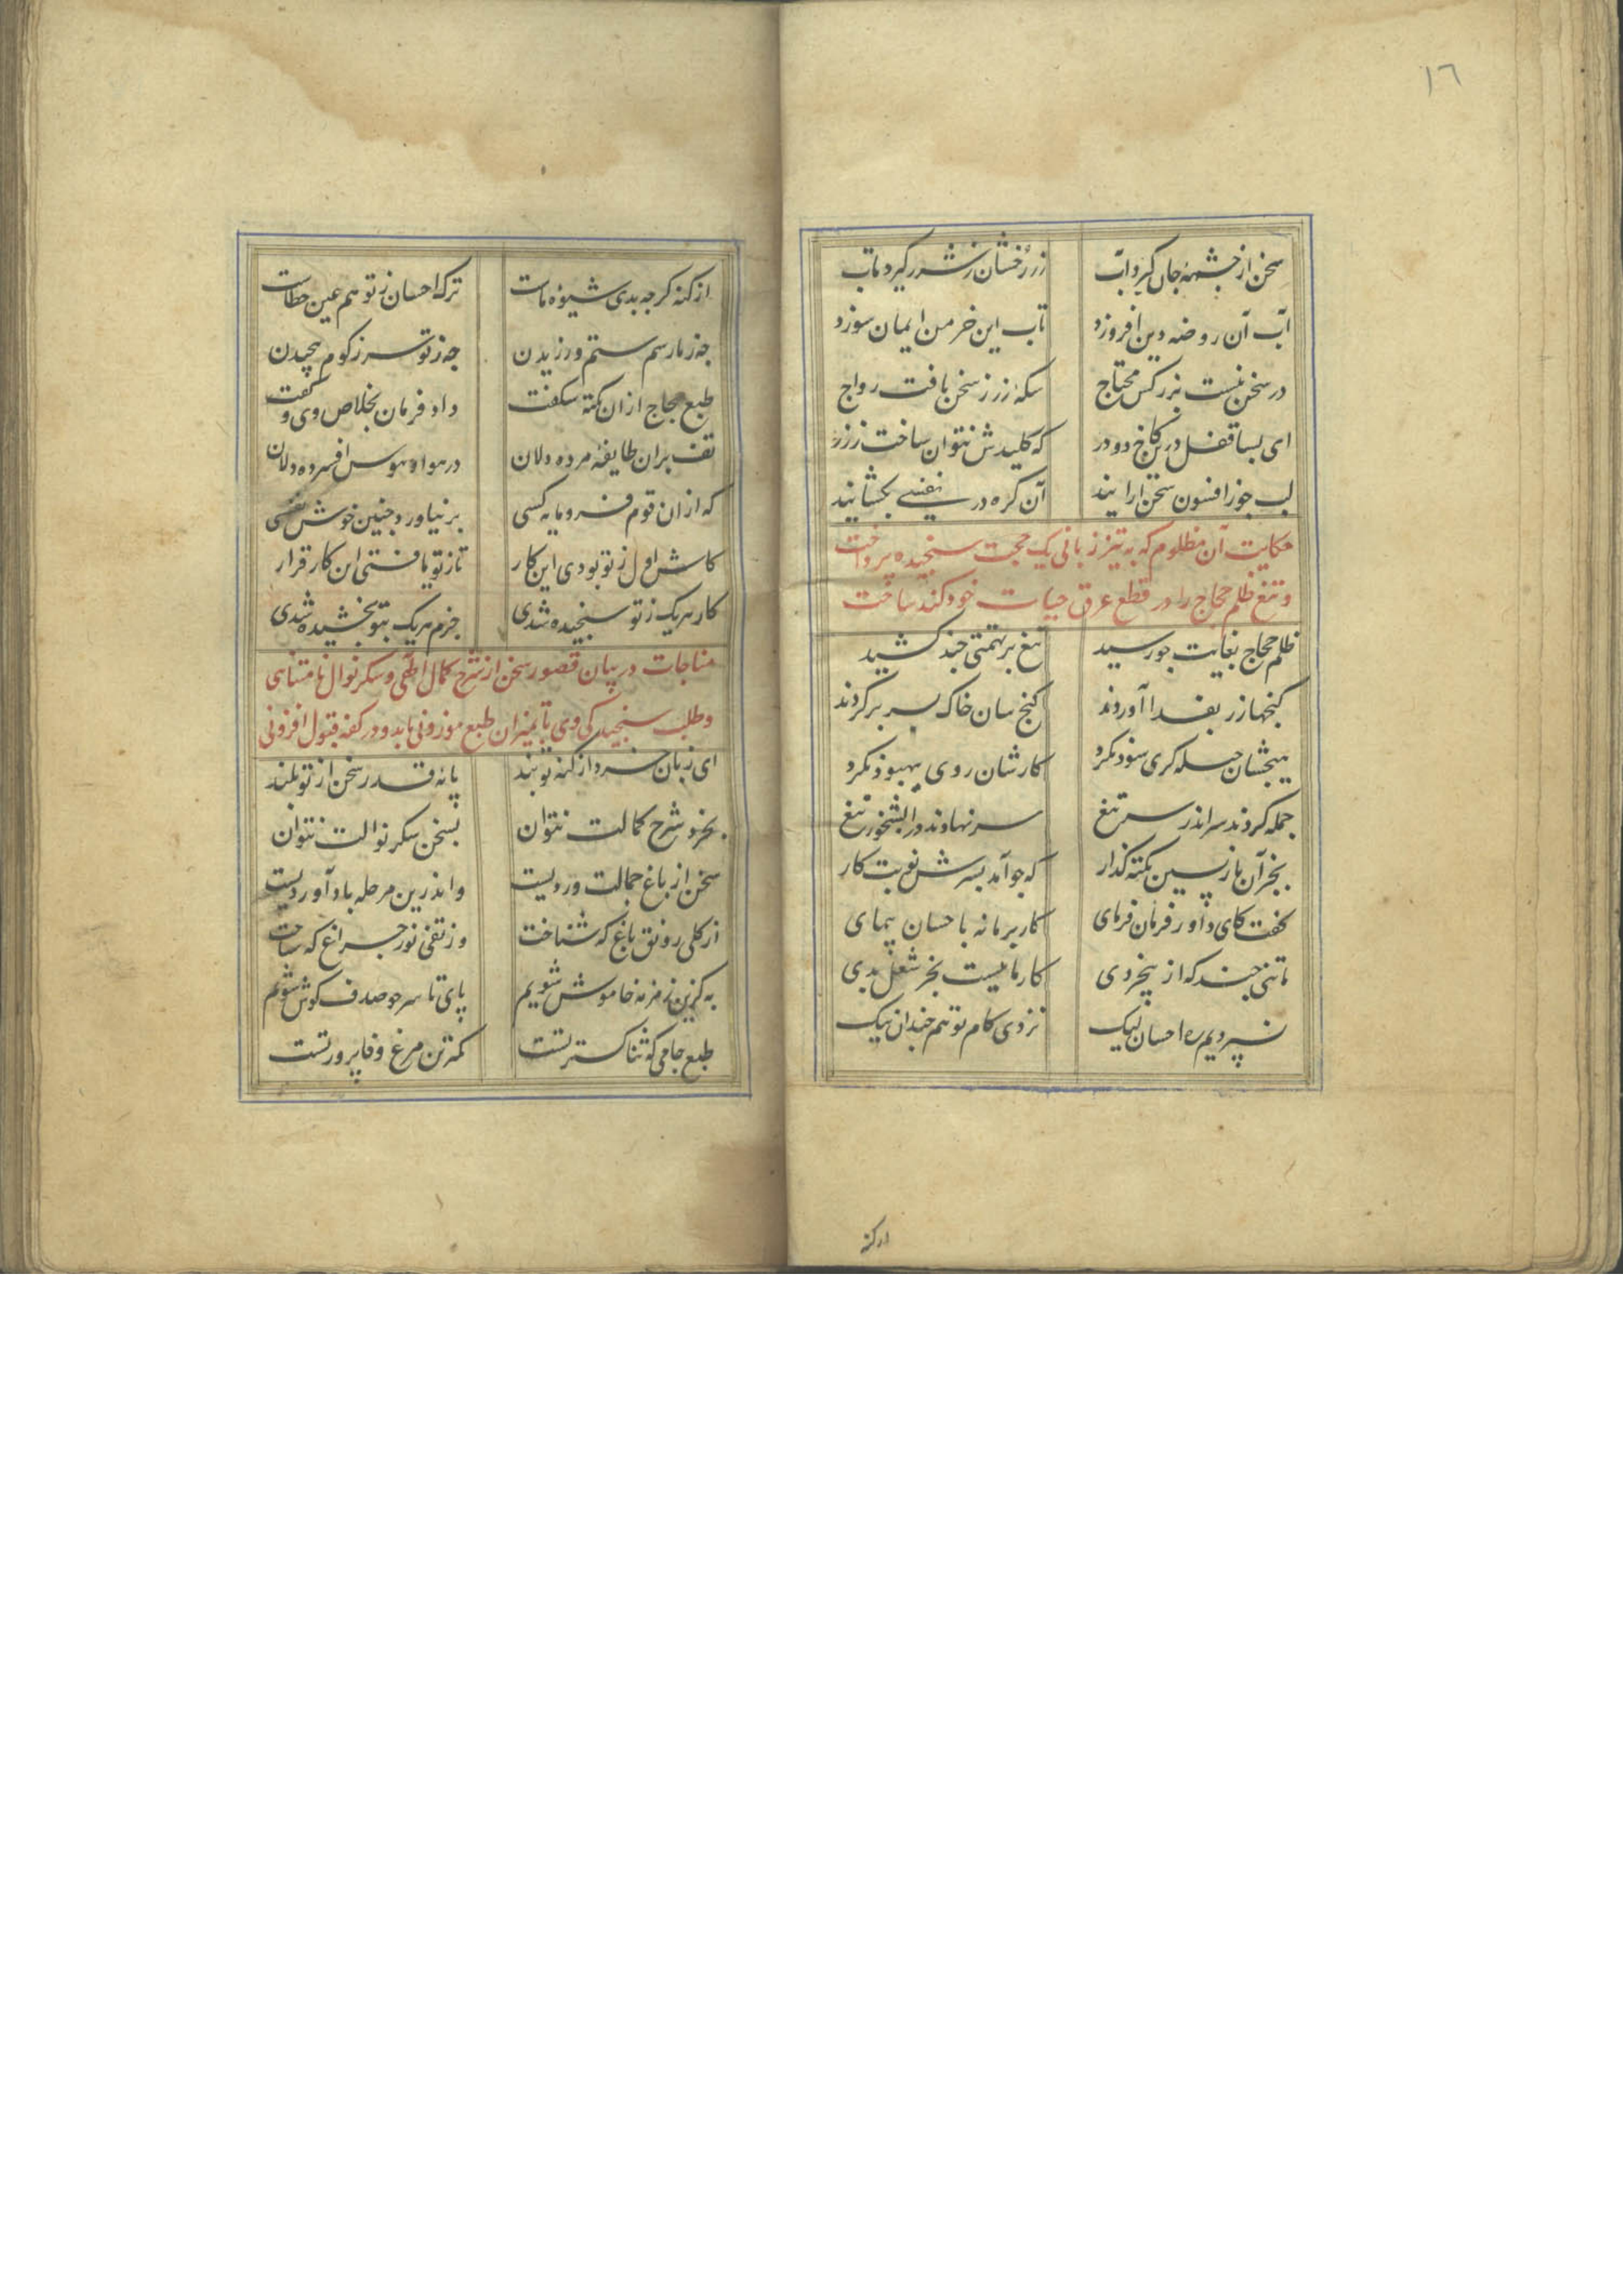 ١٦
سخن از چشمهٔ جان گیرد آب زر رخشان ز شرر گیرد تاب
آب آن روضه دین افروزد تاب این خرمن ایمان سوزد
در سخن نیست بزر کس محتاج سکهٔ زر ز سخن یافت رواج
ای بسا قفل درین کاخ دو در که کلیدش نتوان ساخت ز زر
لب جو ز افسون سخن ارایند آن کره در نفسی بکشایند
حکایت آن مظلوم که به تیز زبانی یک حجت سنجیده پرداخت
و تیغ ظلم حجاج را در قطع عرق حیات خود کند ساخت
ظلم حجاج بغایت جو رسید تیغ بر تهمتی چند کشید
کنجها زر بفدا آوردند کنج سان خاک بسر بر کردند
هیچشان حیله کری سود نکرد کارشان روی ببهبود نکرد
جمله کردند سر اندر سر تیغ سر نهادند در آبشخور تیغ
بجز آن بازپسین نکته گذار که جو آمد بسرش نوبت کار
گفت کای داور فرمان فرمای کار بر ما نه باحسان پیمای
ما تنی چند که از بیخردی کار ما نیست بجز شغل بدی
نسپردیم ره احسان لیک نزدی کام تو هم چندان نیک
از کنه
از کنه کرچه بدی شیوهٔ ماست ترک احسان ز تو هم عین خطاست
چه ز ما رسم ستم ورزیدن چه ز تو سر ز کرم پیچیدن
طبع حجاج از ان نکته شکفت داد فرمان بخلاص وی و گفت
تف بران طایفهٔ مرده دلان در هوا و هوس افسرده دلان
که از ان قوم فرومایه کسی بر نیاورد چنین خوش نفسی
کاش اول ز تو بودی این کار تا ز تو یافتی این کار قرار
کار هریک ز تو سنجیده شدی جرم هریک بتو بخشیده شدی
مناجات در بیان قصور سخن از شرح کمال الهی و شکر نوال نامتناهی
و طلب سنجیدگی وی تا بمیزان طبع موزونی یابد و در کفه قبول افزونی
ای زبان خرد از کنه تو بند پایهٔ قدر سخن از تو بلند
بخرد شرح کمالت نتوان بسخن شکر نوالت نتوان
سخن از باغ جمالت وردیست واندرین مرحله باد آوردیست
از کلی رونق باغ که شناخت وز تفی نور چراغ که ساخت
به کزین زمزمه خاموش شویم پای تا سر چو صدف کوش شویم
طبع جامی که ثنا کستر تست کمترین مرغ وفا پرور تست